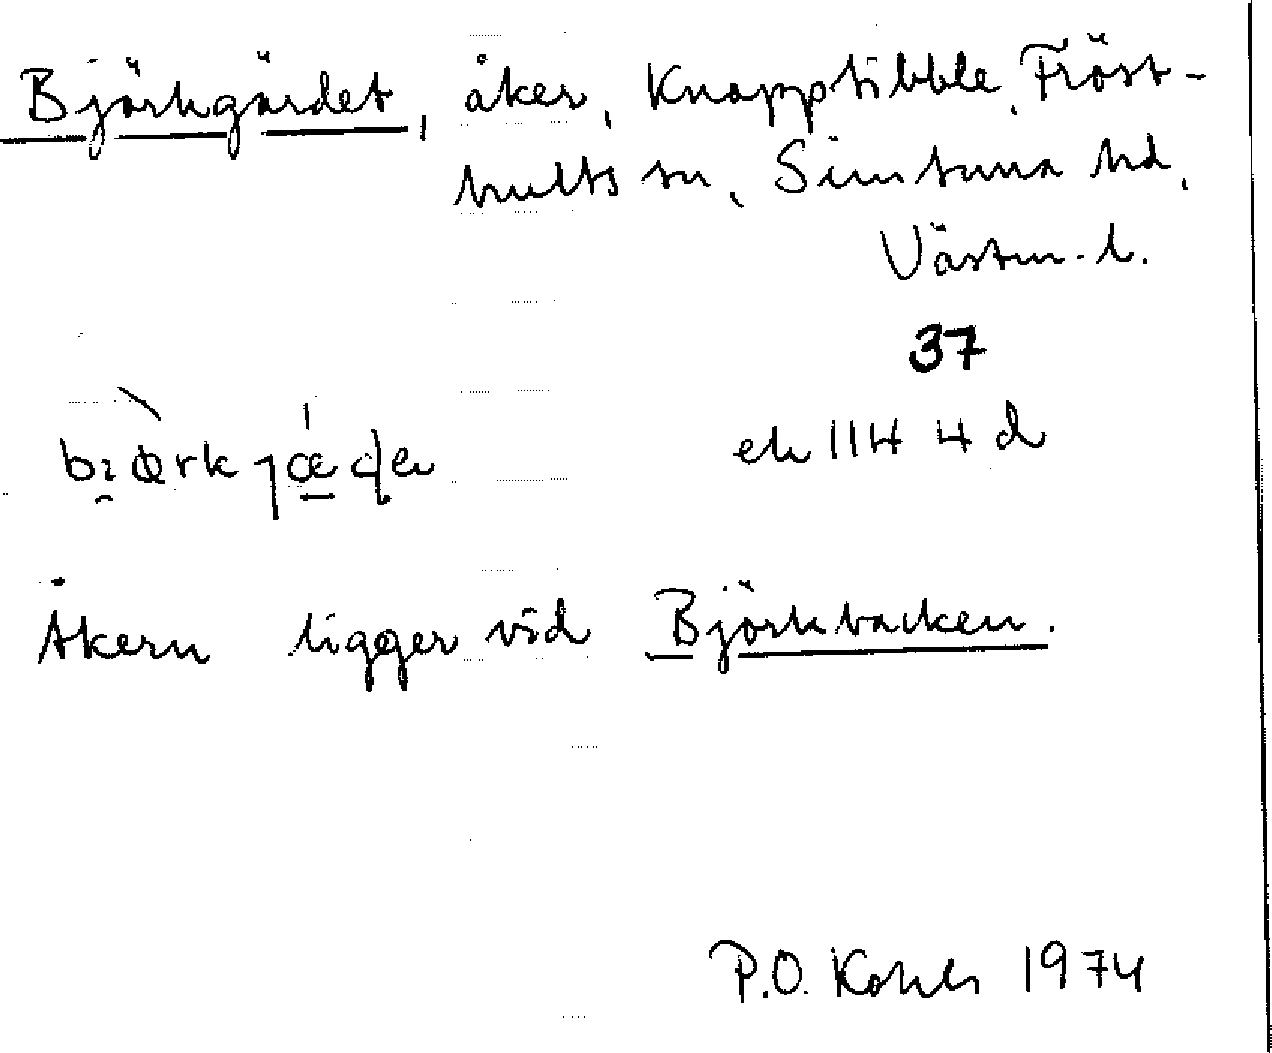 Björkgärdet, åker, Knapptibble, Fröst-
hults sn, Simtuna hd,
Västm. l.
37
ek 11H 4d
Åkern ligger vid Björkbacken.
P.O. 1974